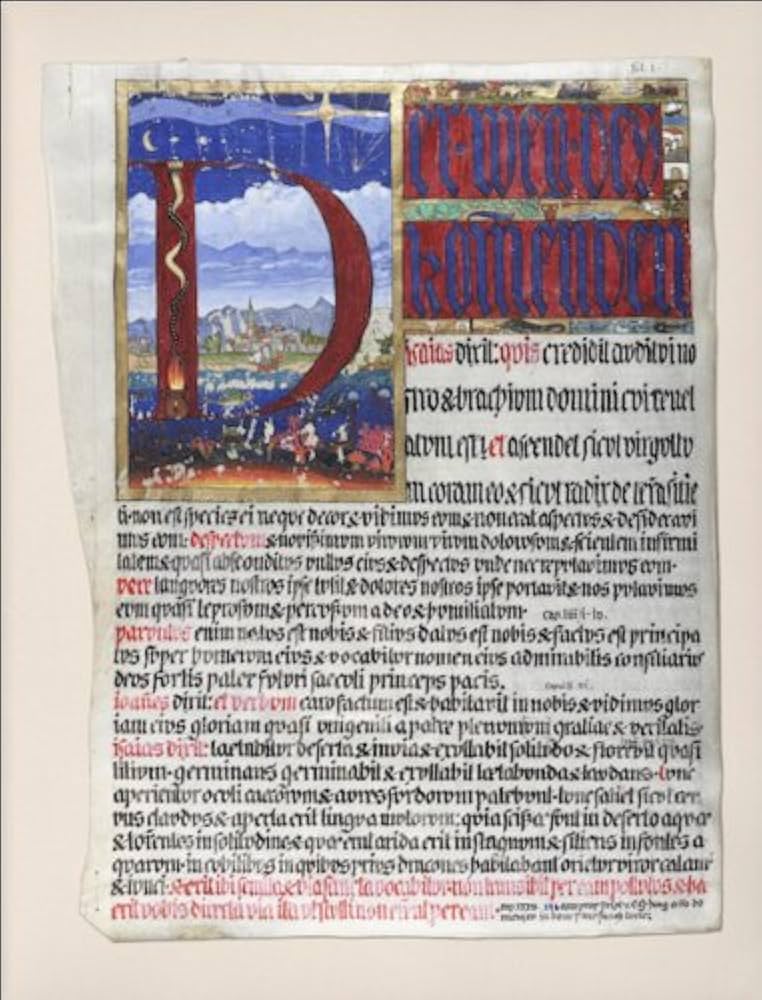 D
er · weg · des
kommenden
isaias dixit: qvis credidit avditvi no
stro & brachivm domini cvi revel
atvm est? et ascendet sicvt virgvltv
m coram eo & sicvt radix de terra sitie
ti · non est species ei neqve decor & vidimvs evm & non erat aspectvs & desideravi
mvs evm: despectvm & novissimvm virorvm virvm dolorvm & scientem infirmi
tatem & qvasi absconditvs vvltvs eivs & despectvs vnde nec repvtavimvs evm ·
vere langvores nostros ipse tvlit & dolores nostros ipse portavit & nos pvtavimvs
evm qvasi leprosvm & percvssvm a deo & hvmiliatvm · cap. liii/i-iv.
parvvlvs enim natvs est nobis & filivs datvs est nobis & factvs est principa
tvs svper hvmervm eivs & vocabitvr nomen eivs admirabilis consiliarivs
devs fortis pater fvtvri saecvli princeps pacis.
ioannes dixit: et verbvm caro factvm est & habitavit in nobis & vidimvs glor
iam eivs gloriam qvasi vnigeniti a patre plenvm gratiae & veritatis
isaias dixit: laetabitvr deserta & invia & exvltabit solitvdo & florebit qvasi
lilivm · germinans germinabit & exvltabit laetabvnda & lavdans · tvnc
aperientvr ocvli caecorvm & avres svrdorvm patebvnt · tvnc saliet sicvt cer
vvs clavdvs & aperta erit lingva mvtorvm: qvia scissae svnt in deserto aqvae
& torrentes in solitvdine & qvae erat arida erit in stagnvm & sitiens in fontes a
qvarvm · in cvbilibvs in qvibvs privs dracones habitabant orietvr viror calami
& ivnci · & erit ibi semita & via & sancta vocabitvr non transibit per eam pollvtvs & haec
erit vobis directa via ita vt stvlti non errent per eam ·